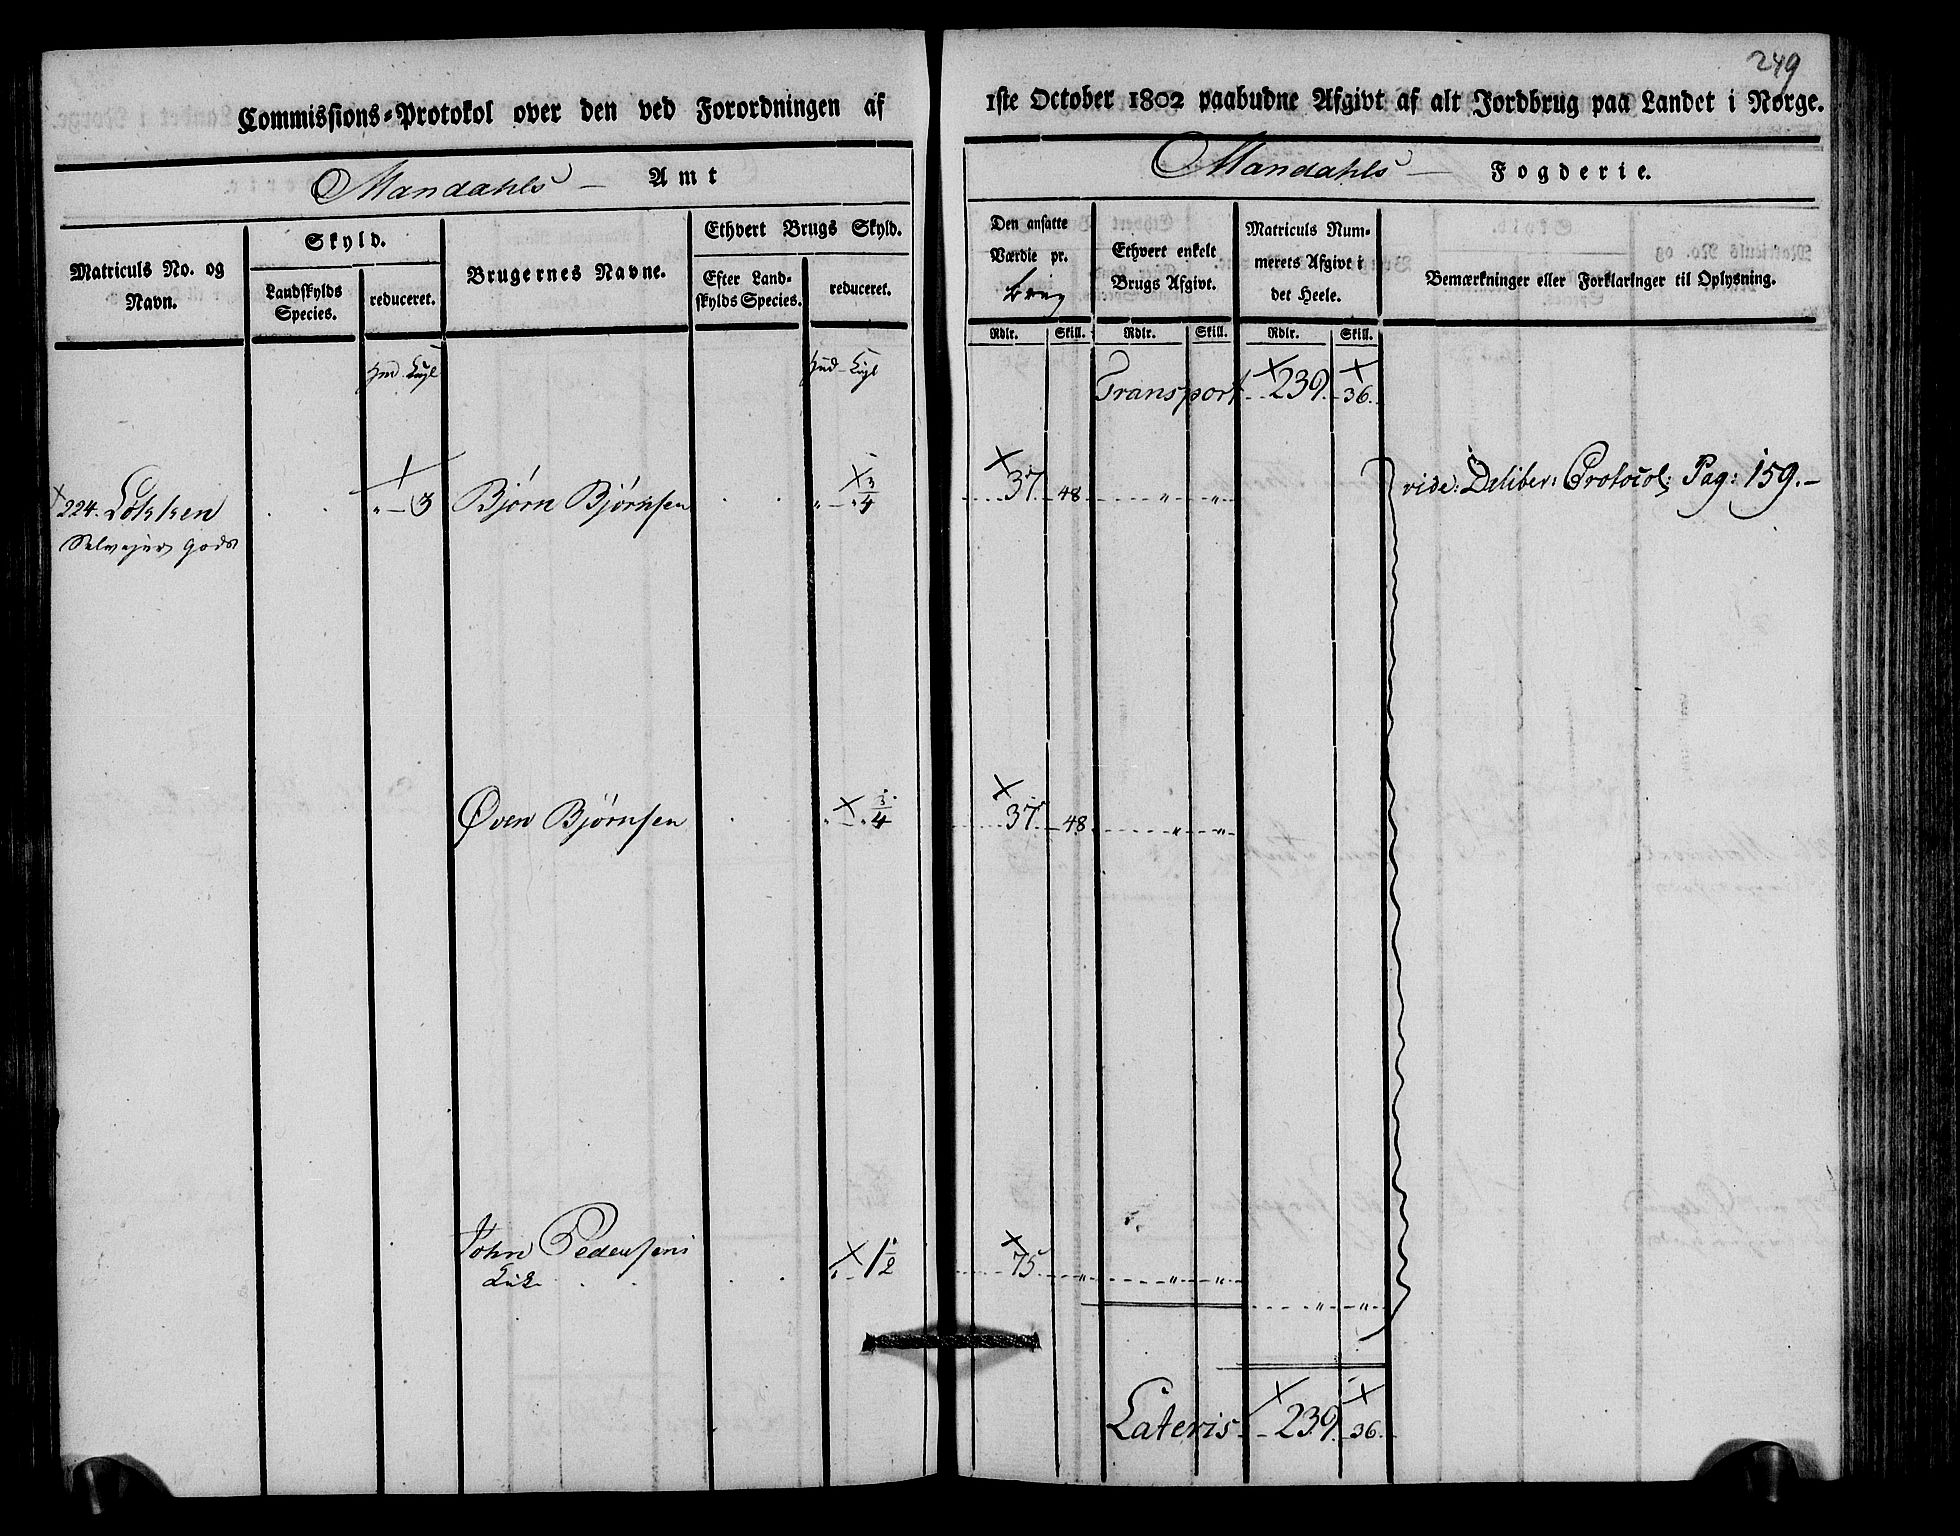 249
Commissions-Protokol over den ved Forordningen af 1ste October 1802 paabudne Afgivt af alt Jordbrug paa Landet i Norge.
Mandahls Amt
Mandahls Fogderie.
Matriculs No. og Navn.
Skyld.
Landskylds Species.
reduceret.
Brugernes Navne.
Ethvert Brugs Skyld.
Efter Landskylds Species.
reduceret.
Den ansatte Værdie pr. brug
Ethvert enkelt Brugs Afgivt.
Matriculs Nummerets Afgivt i det Heele.
Bemærkninger eller Forklaringer til Oplysning.
Rdlr. Skill. Rdlr. Skill. Rdlr. Skill.
Transport 239. 36.
224. Løkken " 3 Bjørn Bjørnsen " " 3/4 37. 48 " " vide: Deliber: Protocol: Pag: 159.
Selvejer Gods
Øven Bjørnsen " " 3/4 37. 48 " "
John Pedersens " 1 1/2 75 " " "
" "
Lateris 239. 36.